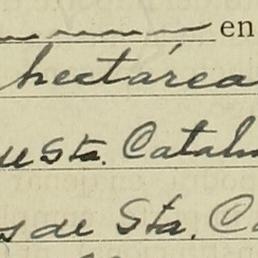 en
hectárea
de Sta. Catal
s de Sta. C